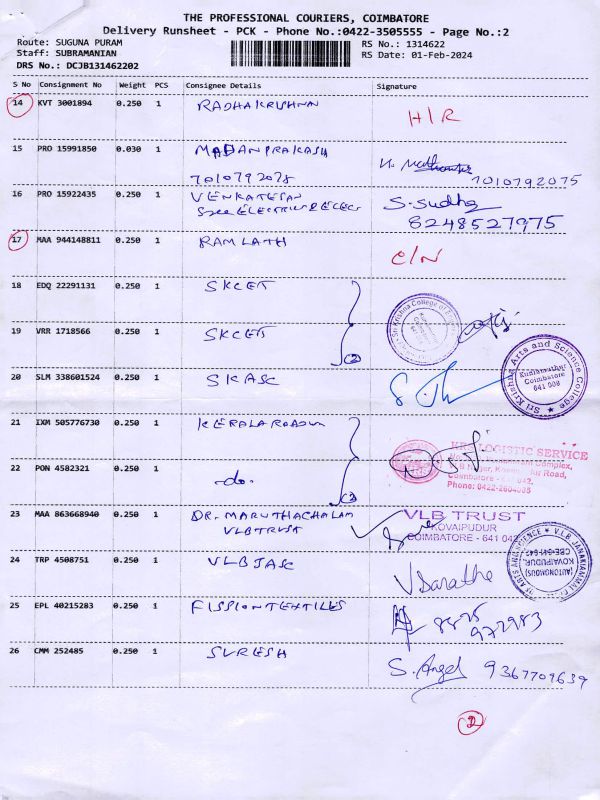 THE PROFESSIONAL COURIERS, COIMBATORE
Delivery Runsheet - PCK - Phone No.:0422-3505555 - Page No.:2
Route: SUGUNA PURAM
RS No.: 1314622
Staff: SUBRAMANIAN
RS Date: 01-Feb-2024
DRS No.: DCJB131462202
S No Consignment No Weight PCS Consignee Details Signature
14 KVT 3001894 0.250 1 RADHAKRISHNAN H/R
15 PRO 15991850 0.030 1 MADANPRAKASH
7010792075 7010792075
16 PRO 15922435 0.250 1 VENKATESAN S.Sudha
8248527975
17 MAA 944148811 0.250 1 RAMLATH C/N
18 EDQ 22291131 0.250 1 SKCET
Sri Krishna College of
19 VRR 1718566 0.250 1 SKCET (2)
20 SLM 338601524 0.250 1 SKASC
Sri Krishna Arts and Science College
Kuniamuthur
Coimbatore
641 008
21 IXM 505776730 0.250 1 KERALA ROADWAY
KRS LOGISTIC SERVICE
Complex,
Road,
Coimbatore - 641 042.
Phone: 0422-2604005
22 PON 4582321 0.250 1 -do- (2)
23 MAA 863668940 0.250 1 DR. MARUTHACHALAM
VLB TRUST
VLB TRUST
KOVAIPUDUR
COIMBATORE - 641 042
24 TRP 4508751 0.250 1 VLBJASC V Sarathe
V.L.B. JANAKIAMMAL
ARTS AND SCIENCE
(AUTONOMOUS)
KOVAIPUDUR
CBE-641 042
25 EPL 40215283 0.250 1 FISSION TEXTILES 8825
972983
26 CMM 252485 0.250 1 SURESH S. Angel 9367709639
2